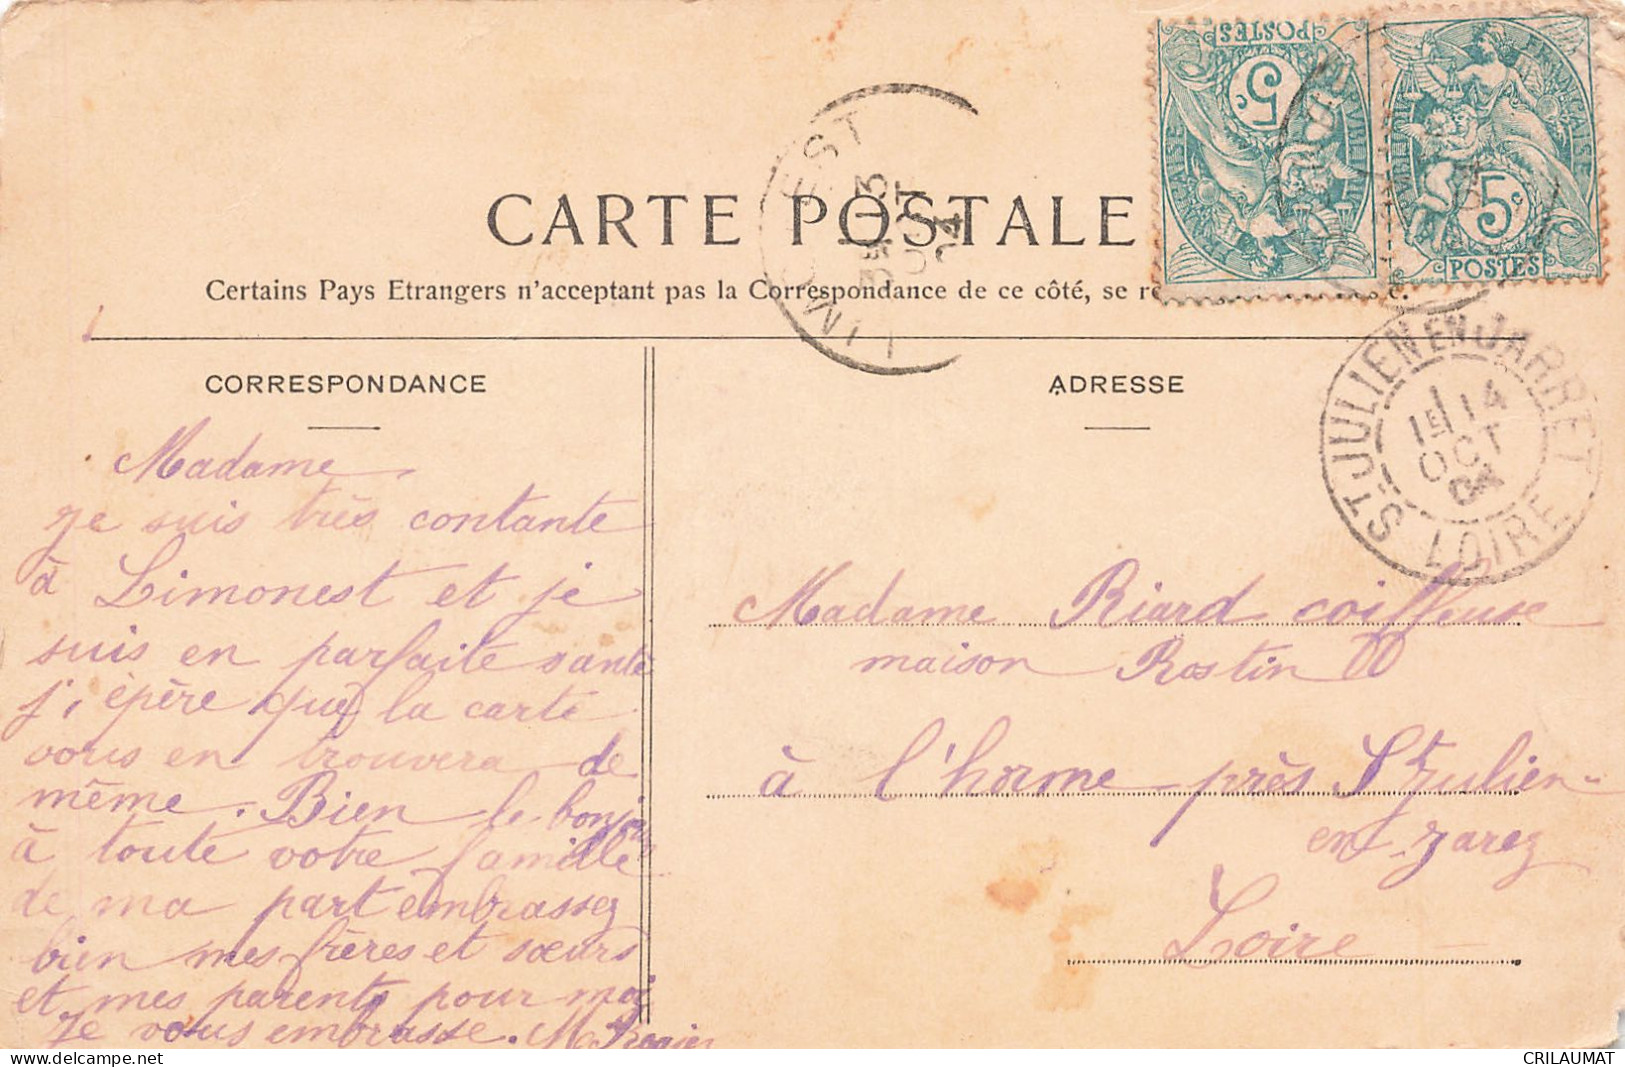 CARTE POSTALE
Certains Pays Etrangers n'acceptant pas la Correspondance de ce côté, se
CORRESPONDANCE
ADRESSE
POSTES
5c
FRANÇAISE
5c
POSTES
LIMONEST
3
OCT
04
ST JULIEN EN JARRET
1E 14
OCT
04
LOIRE
Madame
Je suis très contante
à Limonest et je
suis en parfaite santé
j, èpère que la carte
vous en trouvera de
même. Bien le bonjour
à toute votre famille
de ma part embrassez
bien mes frères et sœurs
et mes parents pour moi
Je vous embrasse. M
Madame Riard coiffeuse
maison Rostin
à l'horme près St Julien-
en Jarez
Loire
delcampe.net
CRILAUMAT